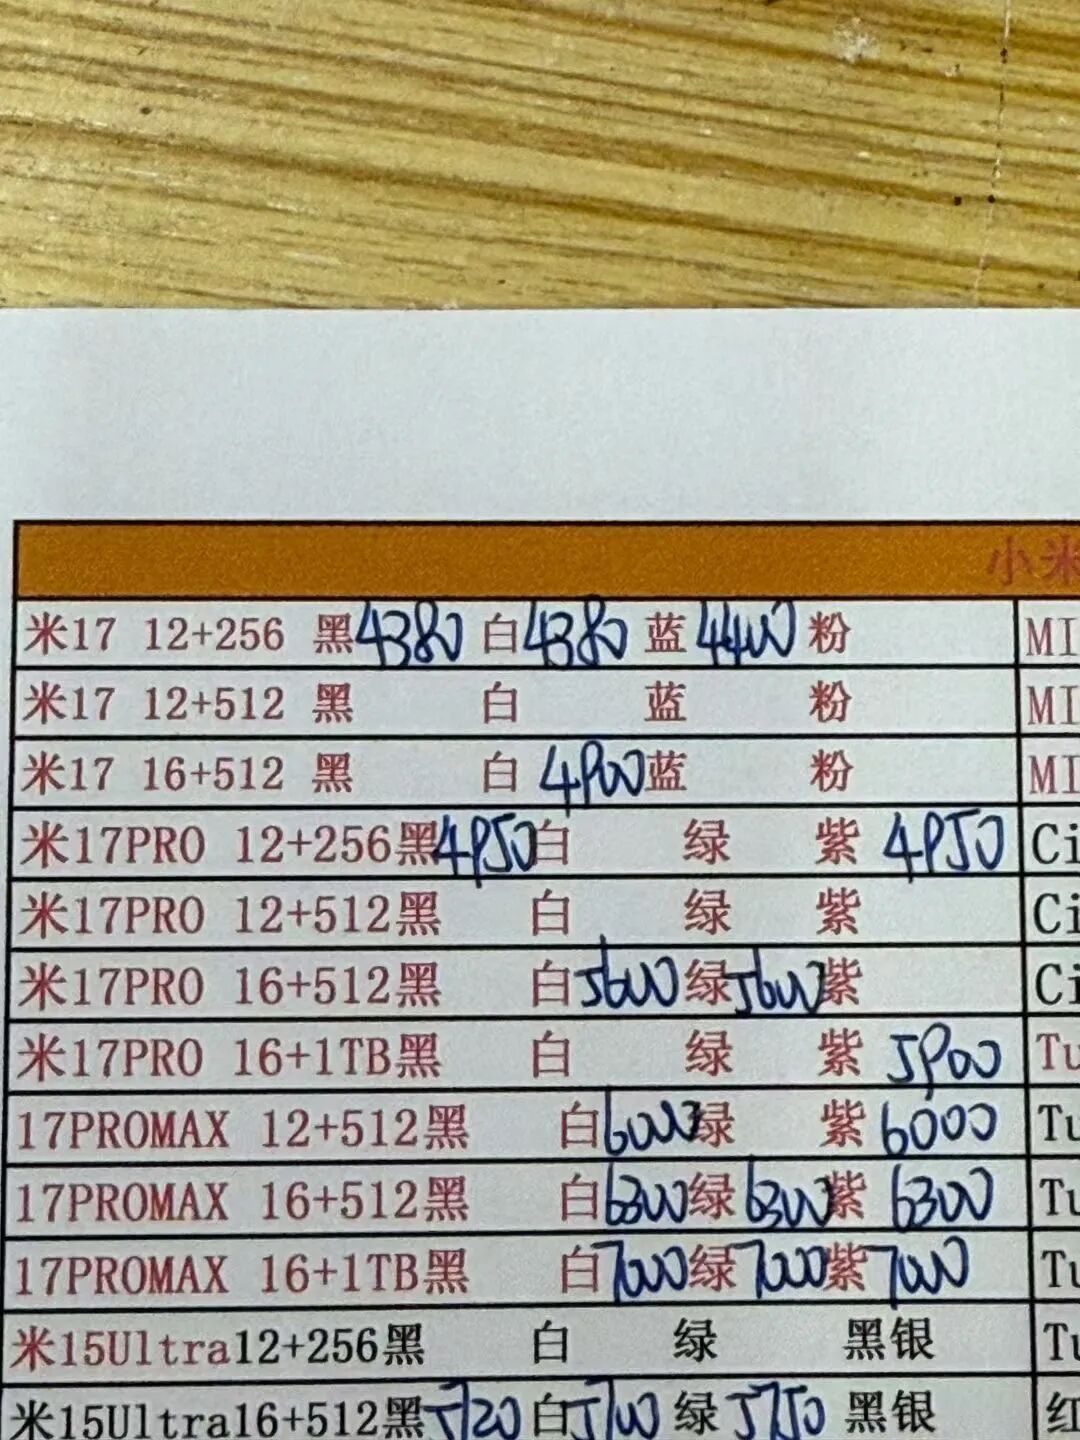 小米
米17 12+256 黑4380 白4380 蓝4400 粉 MI
米17 12+512 黑 白 蓝 粉 MI
米17 16+512 黑 白4900 蓝 粉 MI
米17PRO 12+256黑4950 白 绿 紫4950 Ci
米17PRO 12+512黑 白 绿 紫 Ci
米17PRO 16+512黑 白5600 绿5600 紫 Ci
米17PRO 16+1TB黑 白 绿 紫5900 Tu
17PROMAX 12+512黑 白6000 绿 紫6000 Tu
17PROMAX 16+512黑 白6300 绿6300 紫6300 Tu
17PROMAX 16+1TB黑 白7000 绿7000 紫7000 Tu
米15Ultra12+256黑 白 绿 黑银 Tu
米15Ultra16+512黑5720 白5700 绿5750 黑银 红